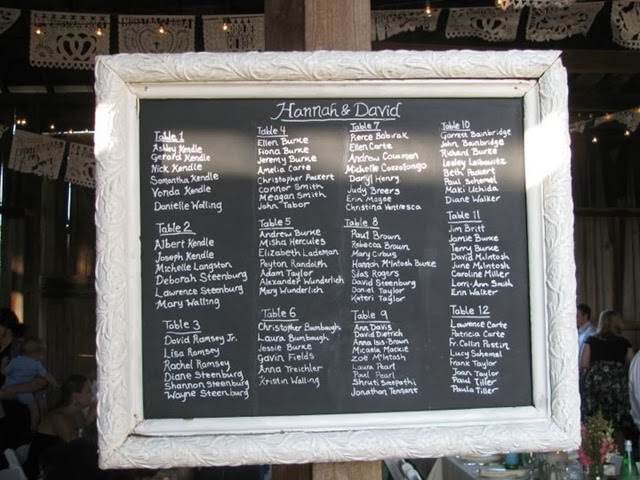 Hannah & David
Table 1
Ashley Kendle
Gerard Kendle
Nick Kendle
Samantha Kendle
Vonda Kendle
Danielle Walling
Table 2
Albert Kendle
Joseph Kendle
Michelle Langston
Deborah Steenburg
Lawrence Steenburg
Mary Walling
Table 3
David Ramsey Jr.
Lisa Ramsey
Rachel Ramsey
Diane Steenburg
Shannon Steenburg
Wayne Steenburg
Table 4
Ellen Burke
Fiona Burke
Jeremy Burke
Amelia Carte
Christopher Peckert
Connor Smith
Meagan Smith
John Tabor
Table 5
Andrew Burke
Misha Hercules
Elizabeth Lademan
Peyton Randolph
Adam Taylor
Alexander Wunderlich
Mary Wunderlich
Table 6
Christopher Bumbaugh
Laura Bumbaugh
Jessie Burke
Gavin Fields
Anna Treichler
Kristin Walling
Table 7
Pierce Babirak
Ellen Carte
Andrew Common
Michelle Cozzolongo
Daryl Henry
Judy Breers
Erin Magee
Christina Ventresca
Table 8
Paul Brown
Rebecca Brown
Mary Cirbus
Hannah McIntosh Burke
Silas Rogers
David Steenburg
Daniel Taylor
Kateri Taylor
Table 9
Ann Davis
David Dietrich
Anna Isa-Brown
Micaela Mackie
Zoë McIntosh
Laura Pearl
Paul Pearl
Shruti Sreepathi
Jonathan Tennant
Table 10
Garrett Bainbridge
John Bainbridge
Richard Burke
Lesley Leibowitz
Beth Packert
Paul Sehemel
Maki Uchida
Diane Walker
Table 11
Jim Britt
Jamie Burke
Terry Burke
David McIntosh
June McIntosh
Caroline Miller
Lorri-Ann Smith
Erin Walker
Table 12
Lawrence Carte
Patricia Carte
Fr. Collin Poston
Lucy Sehemel
Frank Taylor
Joan Taylor
Paul Tiller
Paula Tiller